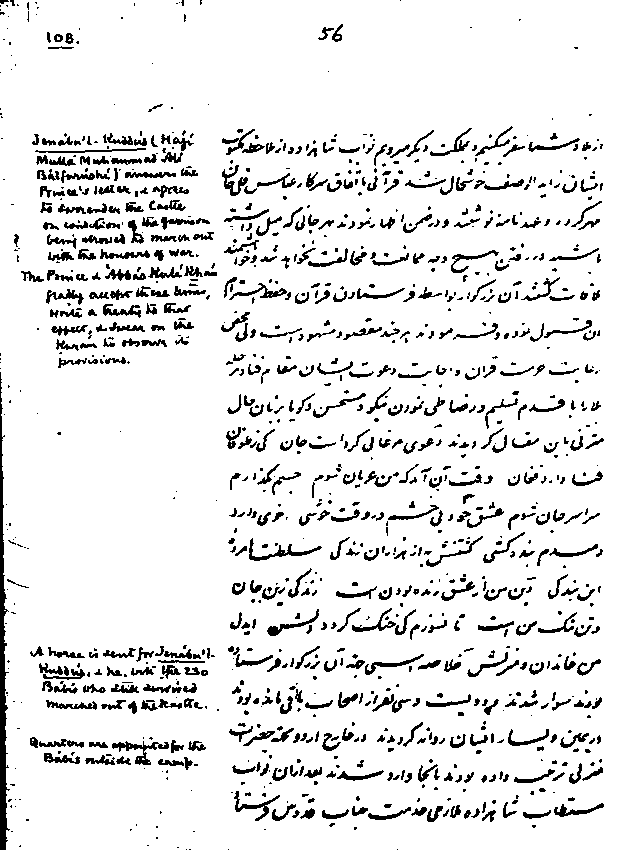 108.
56
Jenábu'l-Ḳuddús (Hájí
Mullá Muhammad 'Alí
Bárfurúshí) answers the
Prince's letter, & agrees
to surrender the Castle
on condition of the garrison
being allowed to march out
with the honours of war.
The Prince & 'Abbás Ḳulí Khán
gladly accept these terms,
write a treaty to that
effect, & swear on the
Ḳurán to observe its
provisions.
A horse is sent for Jenábu'l-
Ḳuddús, & he, with the 230
Bábís who still survived
marched out of the Castle.
Quarters are appointed for the
Bábís outside the camp.
از بلاد شما سفر میکنیم و بمملکت دیگر میرویم نواب شاهزاده از ملاحظه مکتوب
ایشان زاید الوصف خوشحال شد قرآنی باتفاق سرکار عباس قلی خان
مهر کرده و عهدنامه نوشتند و در ضمن اظهار نمودند بهر جائی که میل داشته
باشید در رفتن بهیچ وجه ممانعت و مخالفت نخواهد شد
آن بزرگوار بواسطه فرستادن قرآن و حفظ احترام
آن قبول نموده و فرمودند هر چند مقصود مشهود است ولی محض
رعایت حرمت قرآن و اجابت دعوت ایشان
بقدم تسلیم و رضا طی نمودن نیکو و مستحسن و گویا بزبان حال
مترنم باین مقال گردیدند
وقت آن آمد که من عریان شوم جسم بگذارم
سراسر جان شوم عشق در وقت خوشی خوی دارد
دمبدم
این بندگی من از عشق زنده بودن است زندگی زین جان
و تن ننگ من است
من خاندان و منزلش خلاصه اسبی جهة آن بزرگوار فرستاده
بودند سوار شدند و دویست و سی نفر از اصحاب باقی مانده بودند
در یمین و یسار ایشان روانه گردیدند در خارج اردو بجهة حضرت
منزلی ترتیب داده بودند بانجا وارد شدند بعد از آن نواب
مستطاب شاهزاده ملازمی خدمت جناب قدوس فرستاد